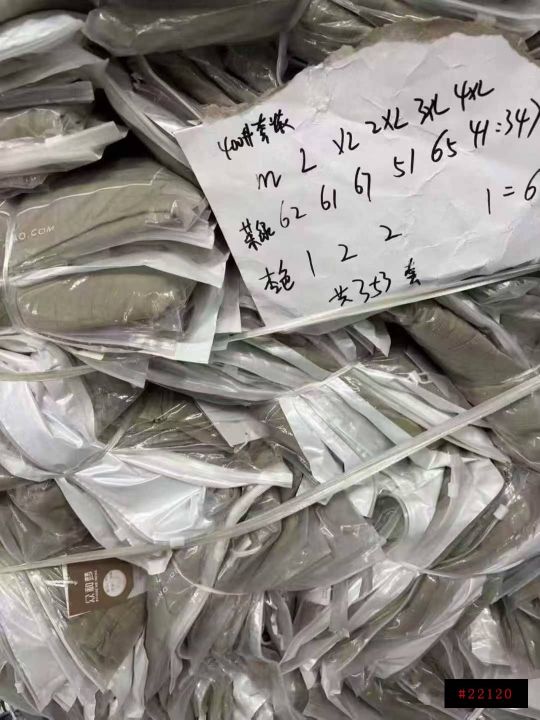 400#套装
M L XL 2XL 3XL 4XL
茶绿 62 61 67 51 65 41=347
杏色 1 2 2 1=6
共353套
AO.COM
众和梦
#22120